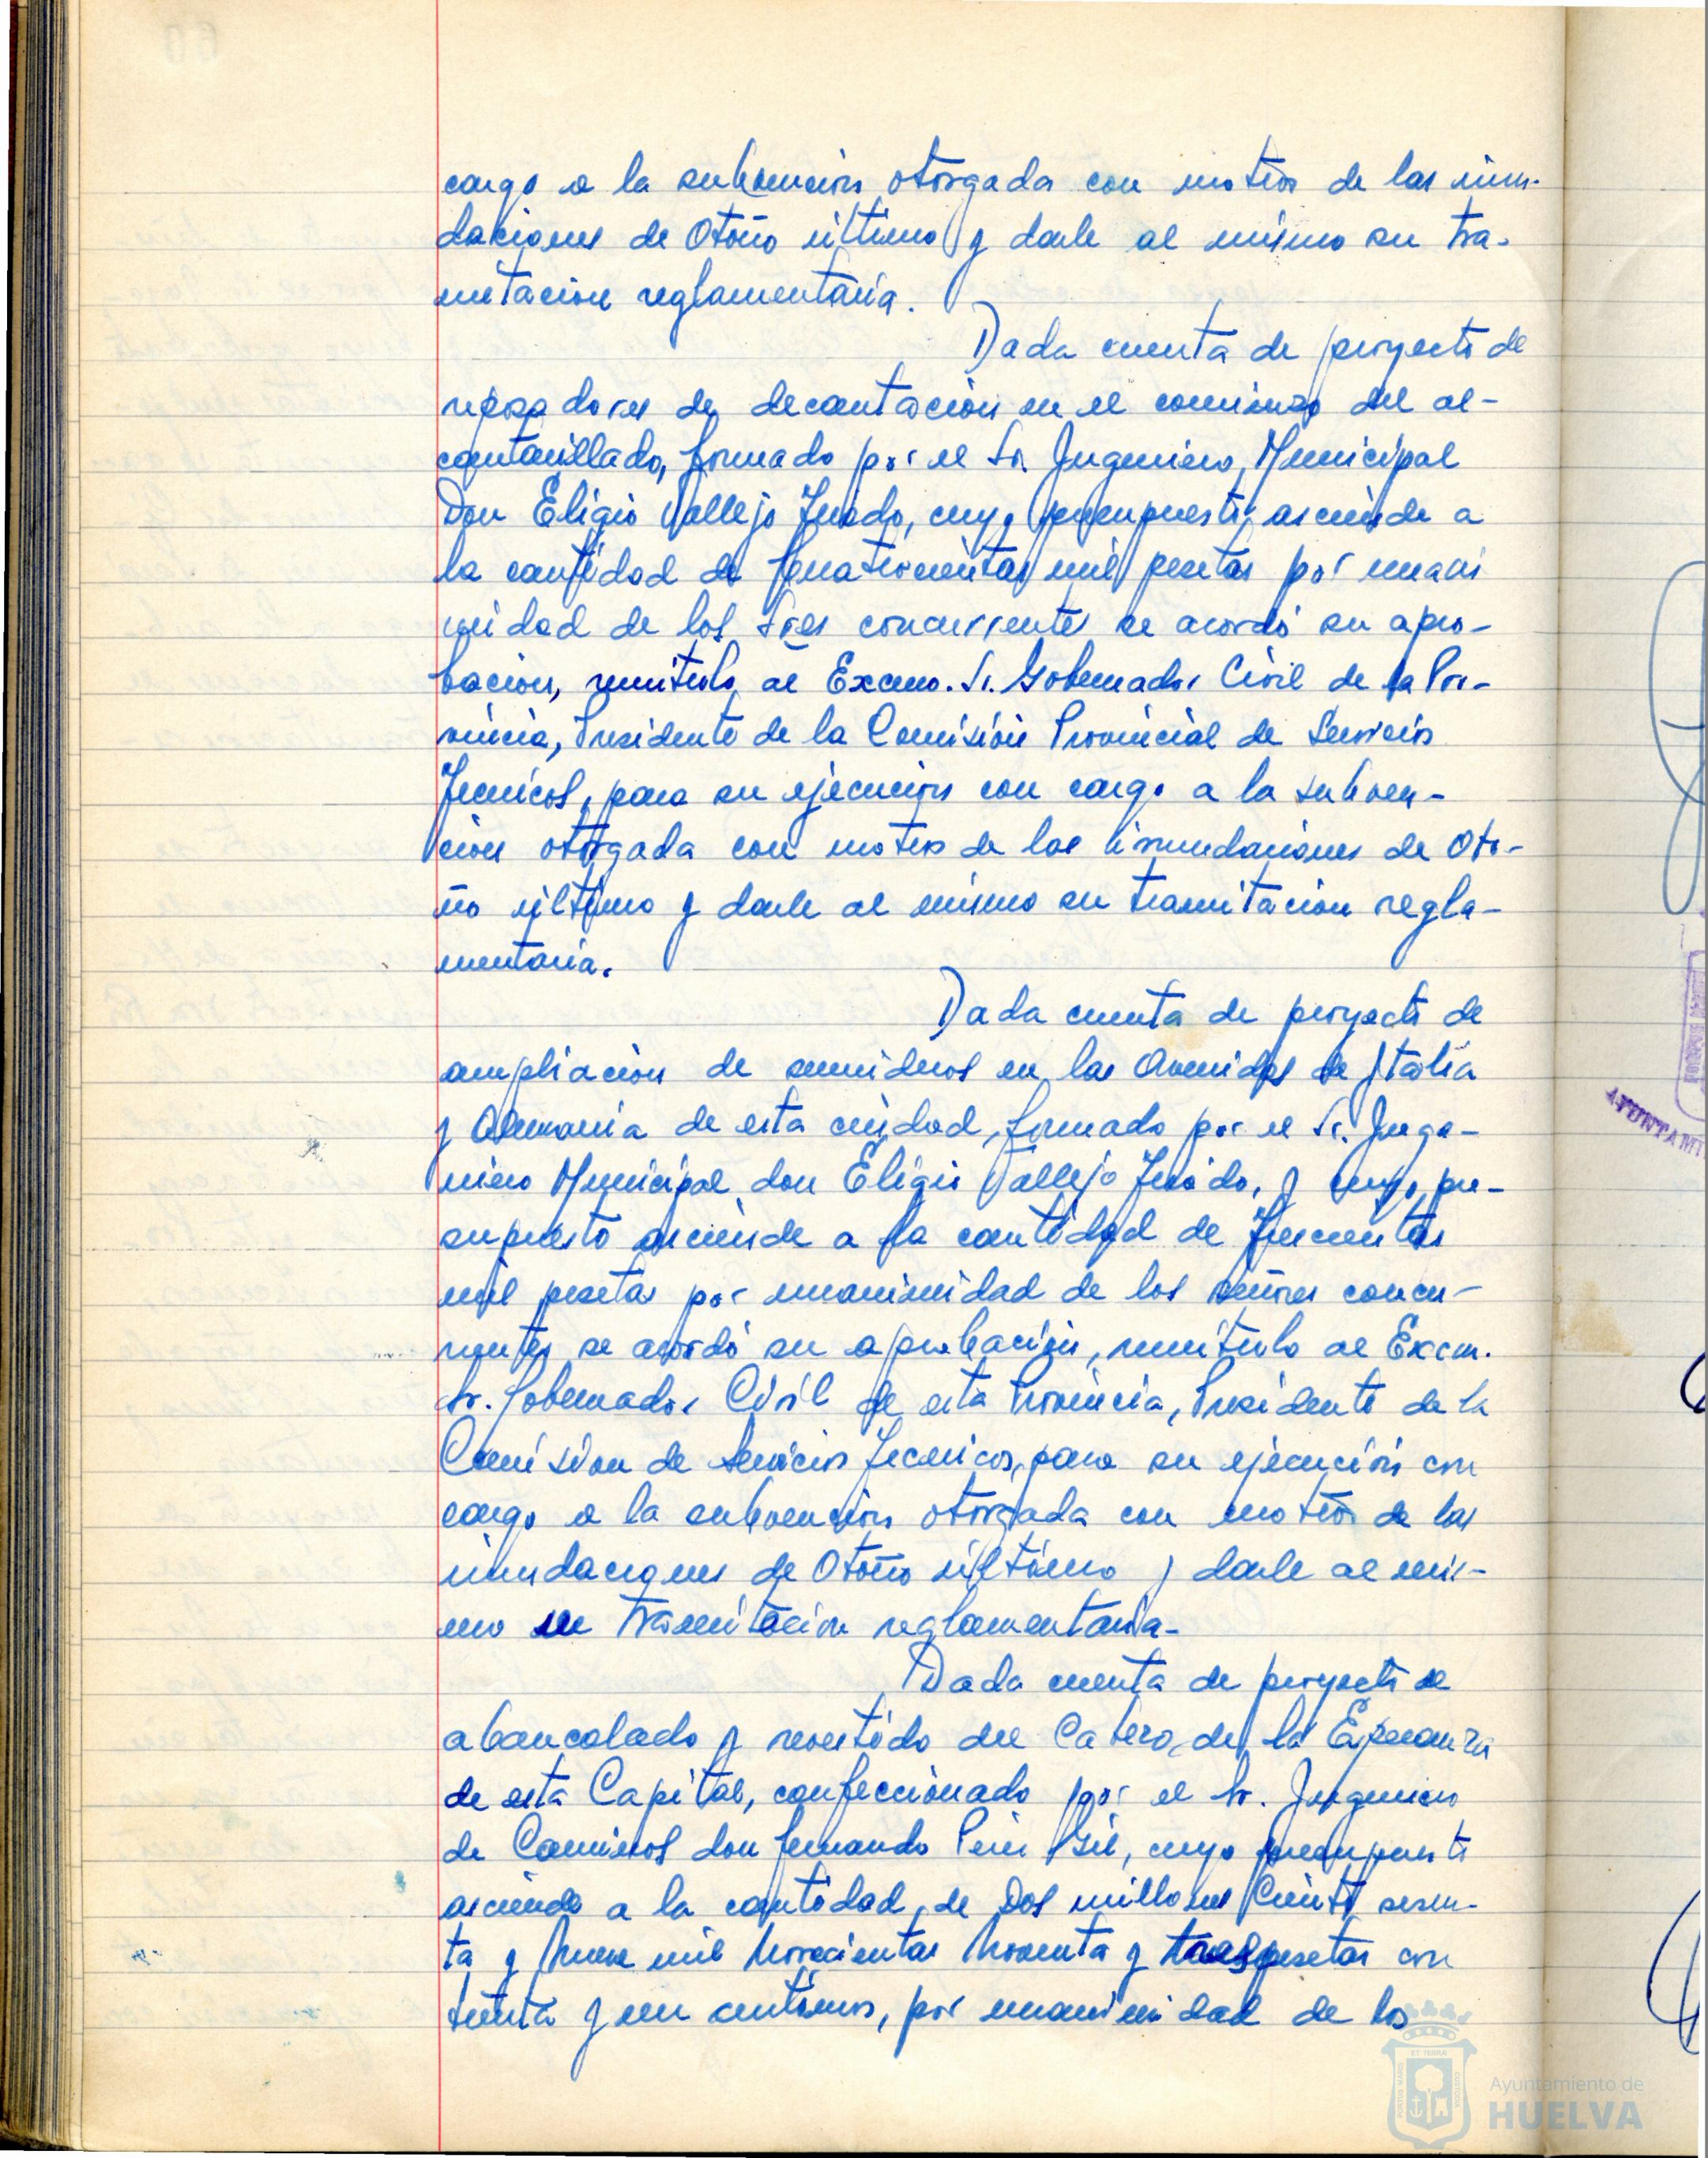 cargo a la subvención otorgada con motivo de las inun-
daciones de Otoño último y darle al mismo su tra-
mitación reglamentaria.
Dada cuenta de proyecto de
reposadores de decantación en el comienzo del al-
cantarillado, formado por el Sr. Ingeniero Municipal
Don Eligio Vallejo Jurado, cuyo presupuesto asciende a
la cantidad de Cuatrocientas mil pesetas por unani
midad de los Sres concurrentes se acordó su apro-
bación, remitirlo al Excmo. Sr. Gobernador Civil de la Pro-
vincia, Presidente de la Comisión Provincial de Servicios
Tecnicos, para su ejecución con cargo a la subven-
ción otorgada con motivo de las inundaciones de Oto-
ño último y darle al mismo su tramitación regla-
mentaria.
Dada cuenta de proyecto de
ampliación de sumideros en las Avenidas de Italia
y Alemania de esta ciudad, formado por el Sr. Inge-
niero Municipal don Eligio Vallejo Jurado, y cuyo pre-
supuesto asciende a la cantidad de Trescientas
mil pesetas por unanimidad de los señores concu-
rrentes se acordó su aprobación, remitirlo al Excm.
Sr. Gobernador Civil de esta Provincia, Presidente de la
Comisión de Servicios Tecnicos, para su ejecución con
cargo a la subvención otorgada con motivo de las
inundaciones de Otoño último y darle al mis-
mo su tramitación reglamentaria-
Dada cuenta de proyecto de
abancalado y revestido del Cabezo de la Esperanza
de esta Capital, confeccionado por el Sr. Ingeniero
de Caminos don Fernando Peire Gil, cuyo presupuesto
asciende a la cantidad de Dos millones Ciento sesen-
ta y Nueve mil Novecientas Noventa y tres pesetas con
treinta y un centimos, por unanimidad de los
Ayuntamiento de
HUELVA
AYUNTAMI